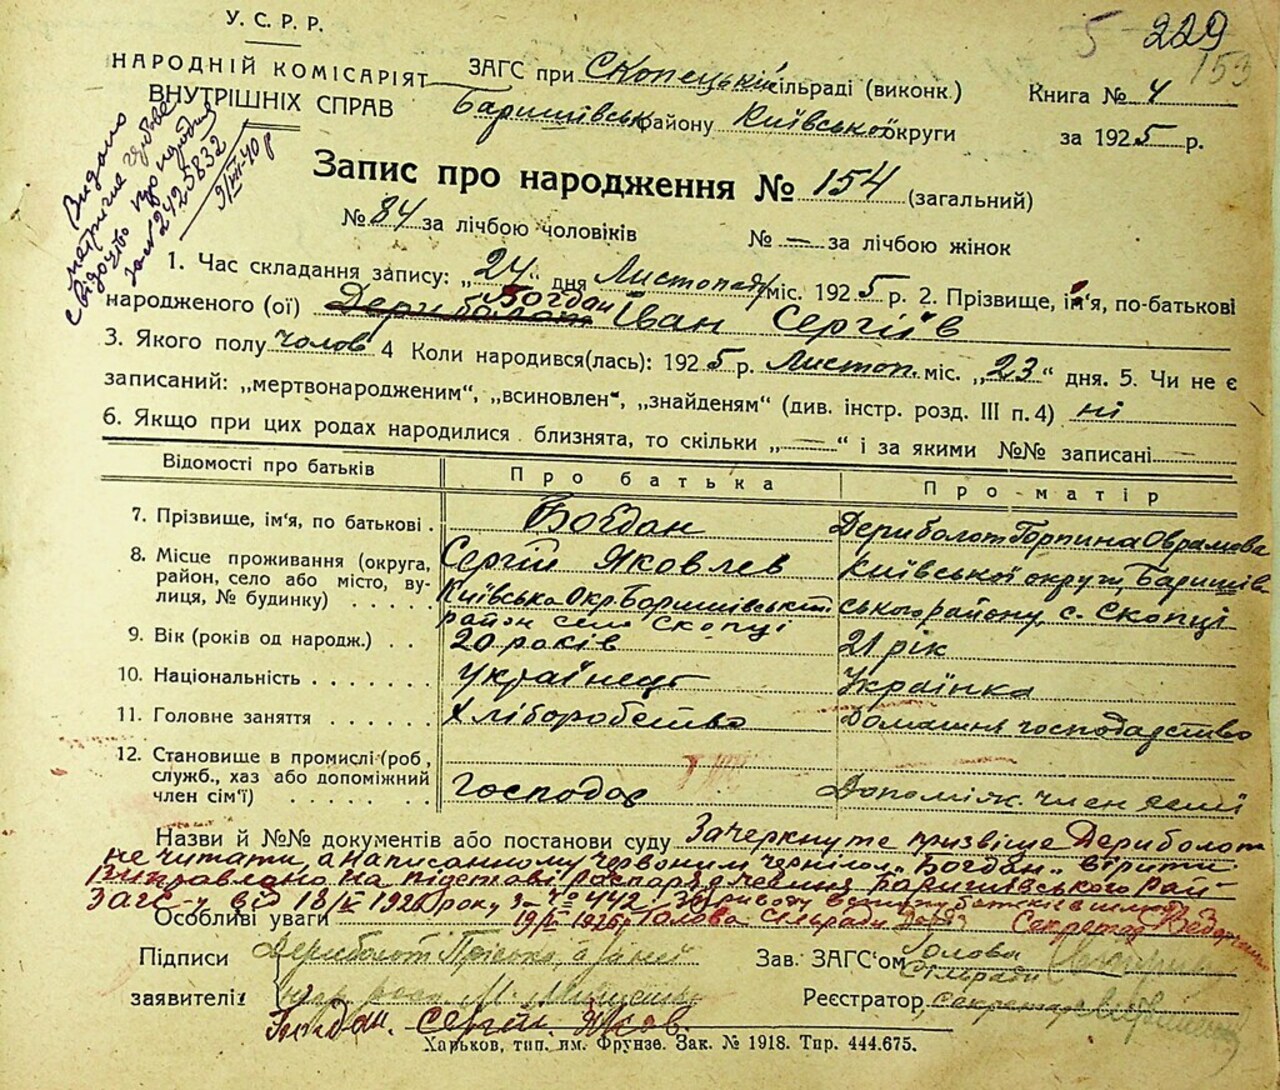 У. С. Р. Р.
5 229
153
НАРОДНІЙ КОМІСАРІЯТ
ВНУТРІШНІХ СПРАВ
ЗАГС при Скопецькій сільраді (виконк.)
Баришівськ району Київської округи
Книга № 4
за 1925 р.
Видано
свідоцтво про народжен
за № 2425832
9/VIII-40 р
Запис про народження № 154 (загальний)
№ 84 за лічбою чоловіків № — за лічбою жінок
1. Час складання запису: „24“ дня Листопад міс. 1925 р. 2. Прізвище, ім'я, по-батькові
Богдан
народженого (ої) Дериболот Іван Сергіїв
3. Якого полу чолов 4 Коли народився(лась): 1925 р. Листоп. міс. „23“ дня. 5. Чи не є
записаний: „мертвонародженим“, „всиновлен“, „знайденям“ (див. інстр. розд. III п. 4) ні
6. Якщо при цих родах народилися близнята, то скільки „—“ і за якими №№ записані
Відомості про батьків
Про батька
Про матір
7. Прізвище, ім'я, по батькові .
Богдан
Сергій Яковлев
Дериболот Горпина Оврамова
8. Місце проживання (округа,
район, село або місто, ву-
лиця, № будинку) . . . . .
Київська Окр. Баришівськ.
район село Скопці
Київської округи, Баришів-
ського району, с. Скопці
9. Вік (років од народж.) . .
20 років
21 рік
10. Національність . . . . . . .
Українець
Українка
11. Головне заняття . . . . . .
Хліборобство
Домашнє господарство
12. Становище в промислі (роб,
служб., хаз або допоміжний
член сім'ї) . . . . . .
Господар
Допоміж. член семї
Назви й №№ документів або постанови суду Зачеркнуте призвіще Дериболот
не читати, а написанному червоним чернілом „Богдан“ вірити.
Виправлено на підставі распорядження Баришівського Рай-
ЗАГС-у від 18/ІV 1926 року за № 442.
Особливі уваги 19/IV 1926 р. Голова Сільради Секретар
Підписи
заявителів:
Дериболот
Богдан. Сергій. Яков.
Зав. ЗАГС'ом Голова
Сільради
Реєстратор секретар
Харьков, тип. им. Фрунзе. Зак. № 1918. Тир. 444.675.